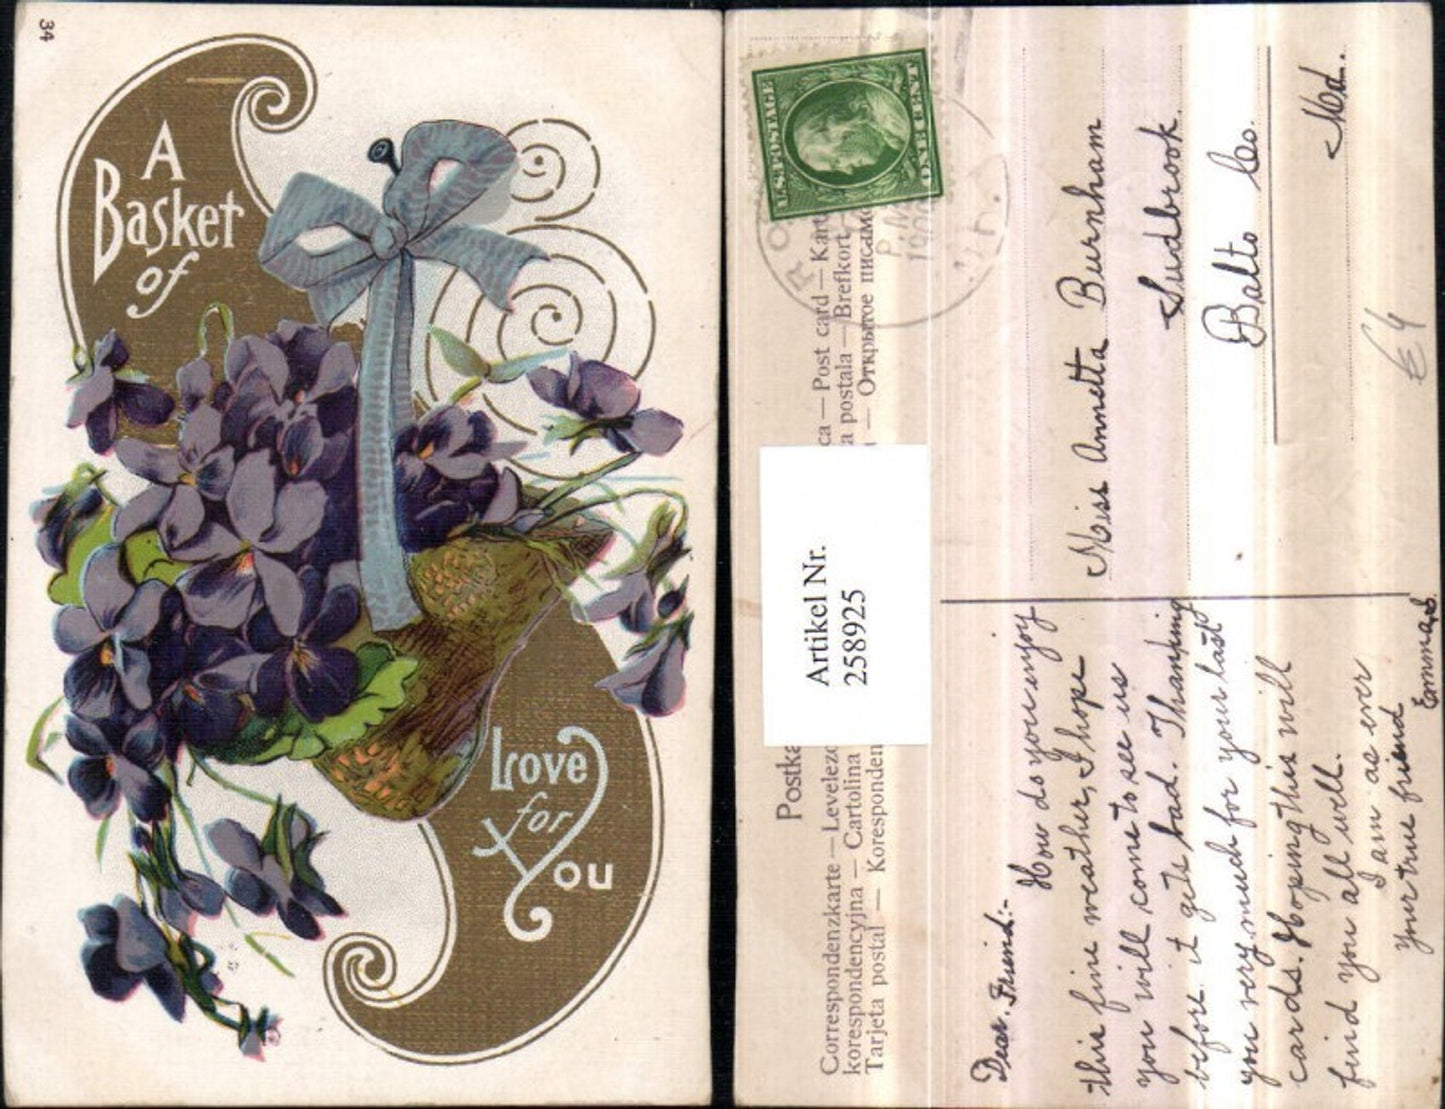 34
A
Basket
of
Love
for
You
U.S. POSTAGE
ONE CENT
RO
P.M
190
Postka
ca — Post card — Kart
Correspondenzkarte — Levelezo
a postala — Brefkort
korespondencyjna — Cartolina
— Открытое писамо
Tarjeta postal — Koresponden
Artikel Nr.
258925
Miss Annetta Burnham
Sudbrook.
Balto Co.
Md.
€4
Dear. Friend:-
How do you enjoy
this fine weather, I hope
you will come to see us
before it gets bad. Thanking
you very much for your last
cards. Hoping this will
find you all well.
I am as ever
your true friend
Emma